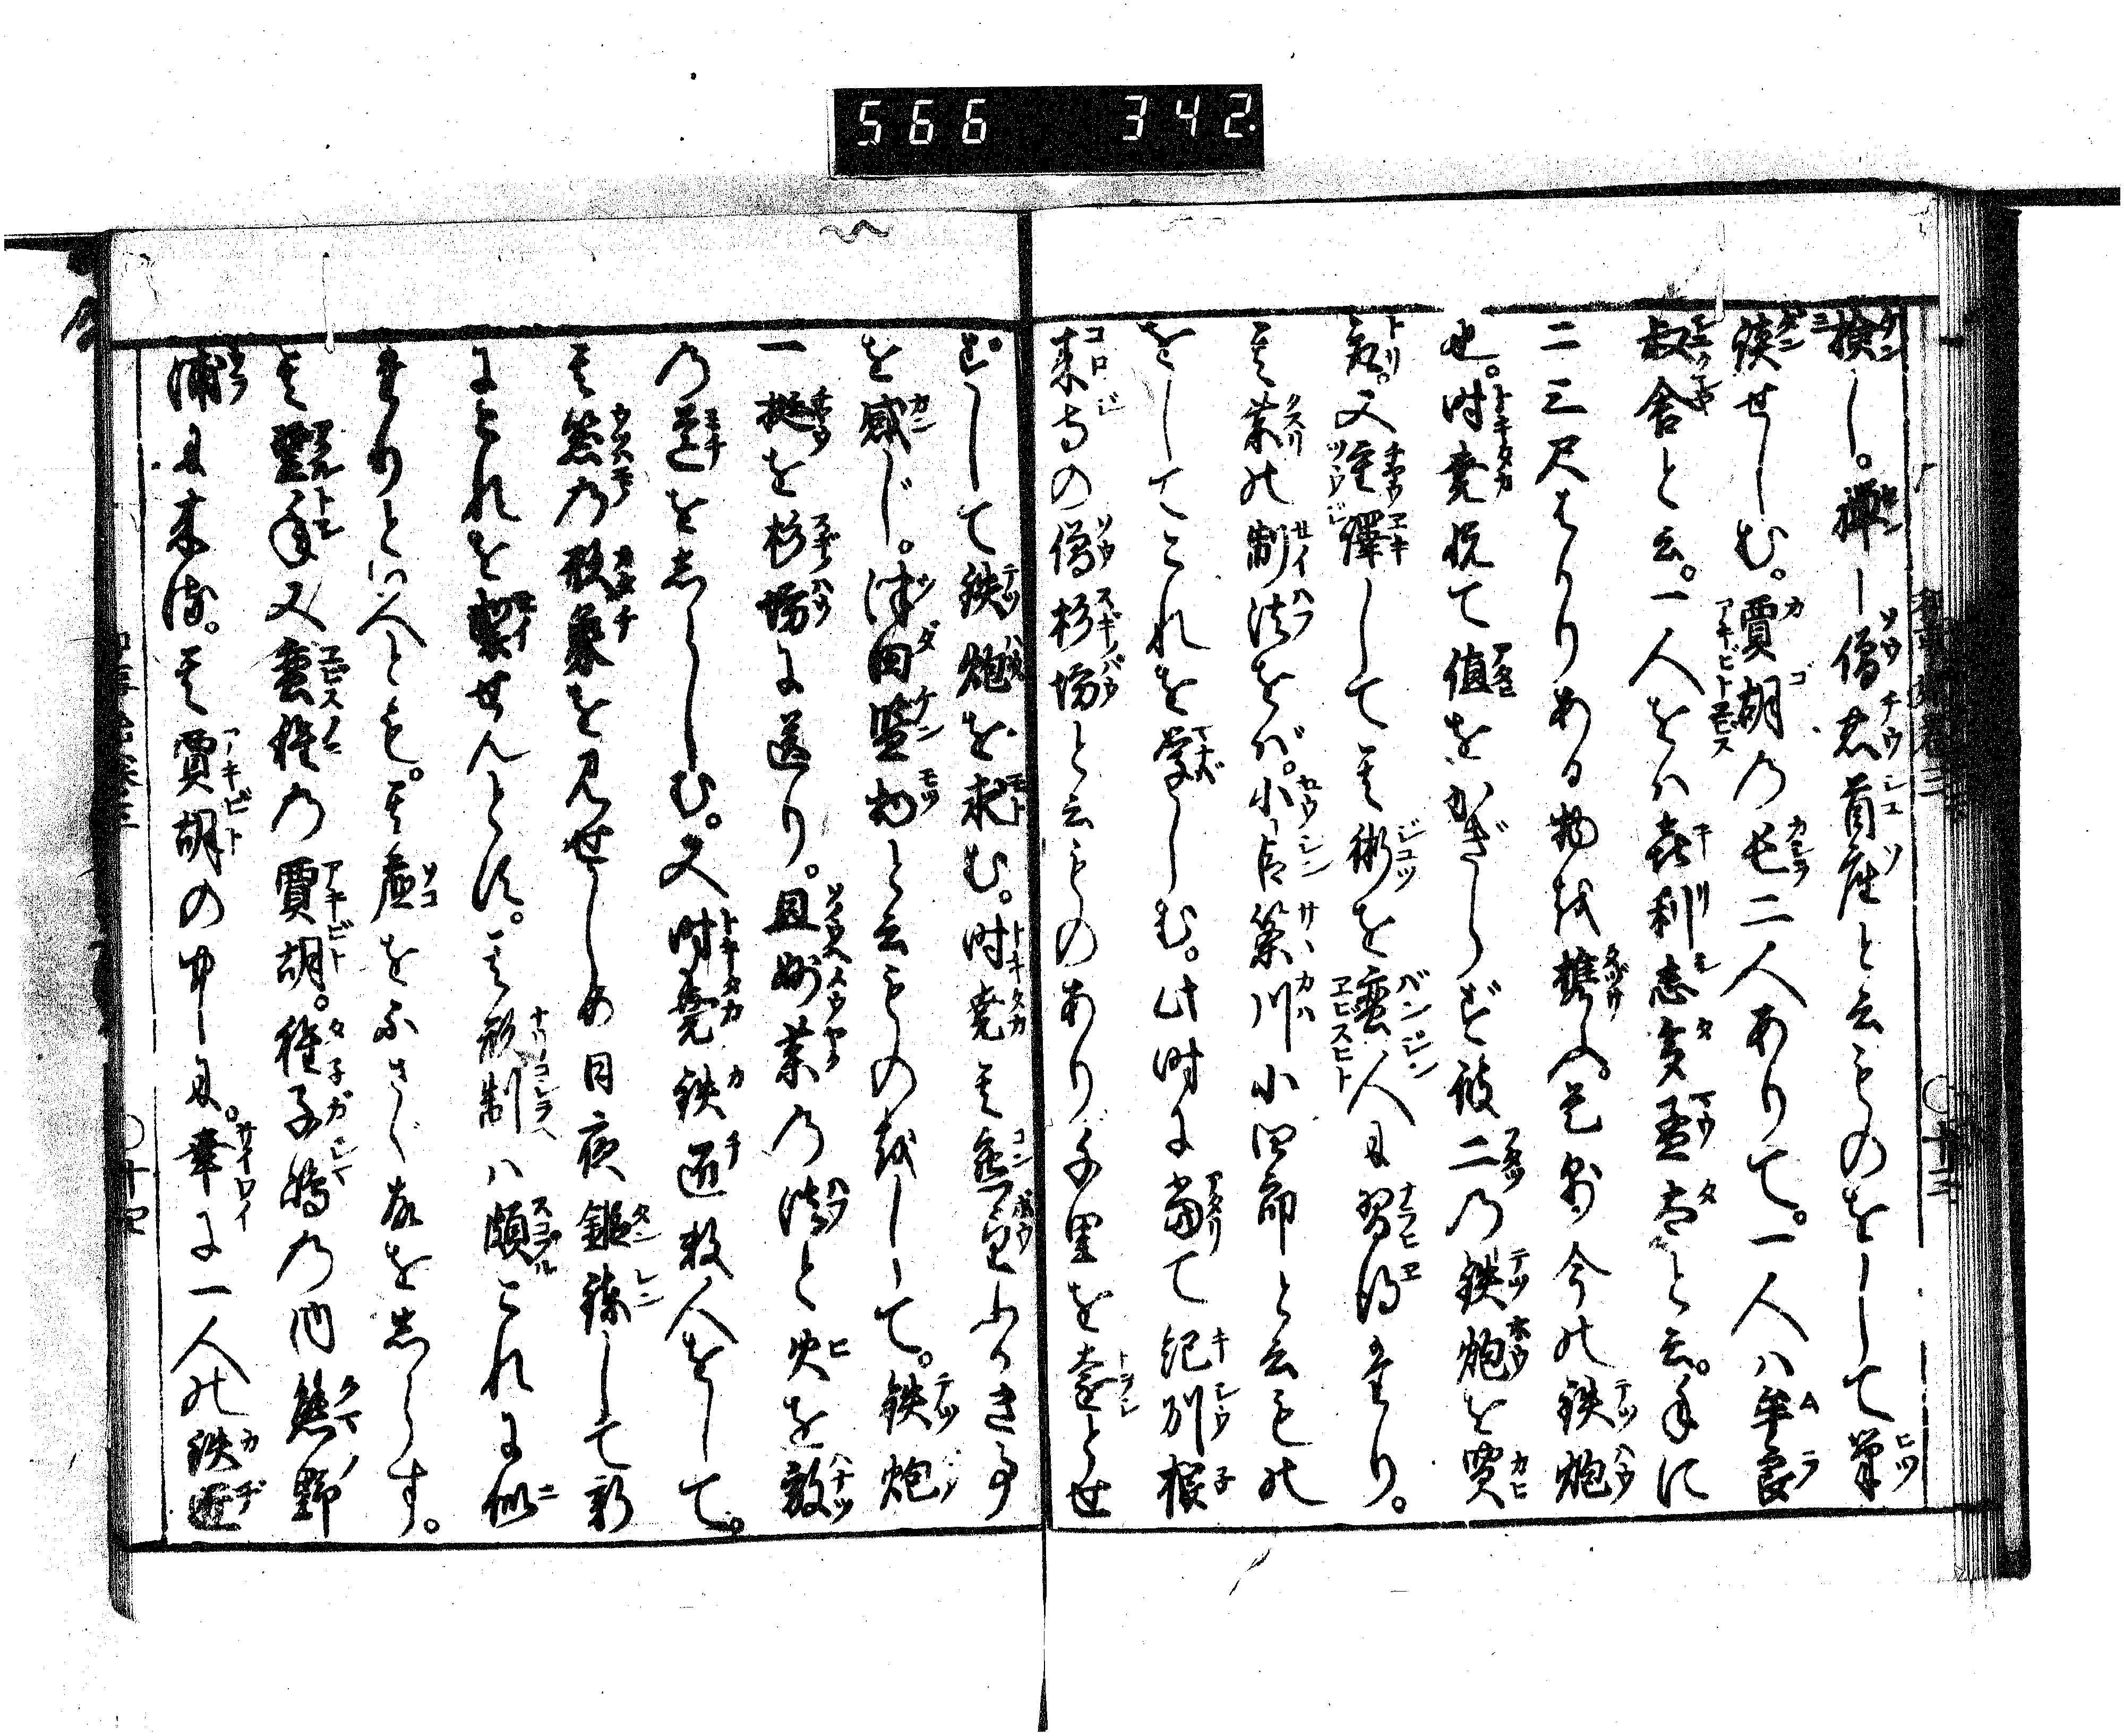 566 342
検し。禅し僧忠首座と云ものをして筆
談せしむ。賈胡の長二人ありて。一人ハ牟良
叔舎と云。一人をハ喜利志多孟太と云。手に
二三尺はかりある物を携ふ。是即今の鉄炮
也。時尭悦て値をかぎらず彼二の鉄炮を買
取。又重譯して其術を蛮人に習得たり。
其薬の制法をバ。小臣篠川小四郎と云もの
をしてこれを学しむ。此時に当て紀刕根
来寺の僧杉坊と云ものあり千里を遠とせ
ずして鉄炮を求む。時尭其懇望ふかき事
を感じ。津田監物と云ものをして。鉄炮
一挺を杉坊に送り。且妙薬の法と火を放
の道をしらしむ。又時尭鉄匠数人をして。
其筒の形象を見せしめ日夜鍛錬して新
にこれを製せんとす。其形制ハ頗これに似
たりといへとも。其底をふさぐ事をしらす。
其翌年又蛮種の賈胡。種子嶋の内熊野
浦に来る。其賈胡の中に。幸に一人の鉄匠